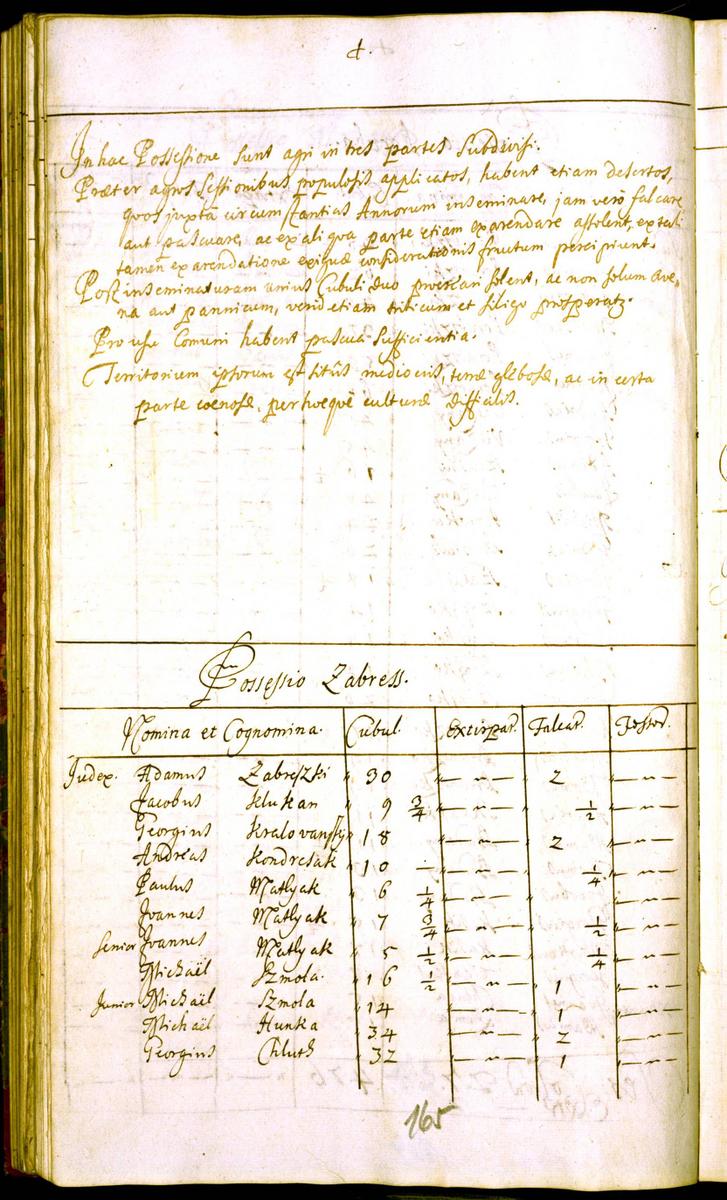 4.
In hac Possessione sunt agri in tres partes subdivisi.
Præter agros Sessionibus populosis applicatos, habent etiam desertos,
quos juxta circumstantias Annorum inseminare, jam verò falcare
aut pascuare, ac ex aliqua parte etiam exarendare assolent, ex tali
tamen exarendatione exiguæ considerationis fructum percipiunt.
Post inseminaturam unius Cubuli duo solent, ac non solum ave,
na aut pannicum, verùm etiam triticum et siligo
Pro usu Comuni habent pascua sufficientia.
Territorium ipsorum est sitûs mediocris, terræ glebosæ, ac in certa
parte cœnosæ, perhocque culturæ difficilis.
Possessio Zabress.
Nomina et Cognomina. Cubul. Extirpat. Falcat.
Judex. Adamus Zabreszki " 30 — " — 2 — " —
Jacobus Klukan " 9 3/4 — " — 1/2 — " —
Georgius Kralovanszky " 18 — " — 2 — " —
Andreas Kondresak " 10 — — " — 1/4 — " —
Paulus Matlyak " 6 1/4 — " — " — " —
Joannes Matlyak " 7 3/4 — " — 1/2 — " —
Senior Joannes Matlyak " 5 1/2 — " — 1/4 — " —
Michaël Szmola. " 16 1/2 — " — 1 — " —
Junior Michaël Szmola " 14 — " — 1 — " —
Michaël Hunka " 34 — " — 2 — " —
Georgius Chluth " 32 — " — 1 — " —
165